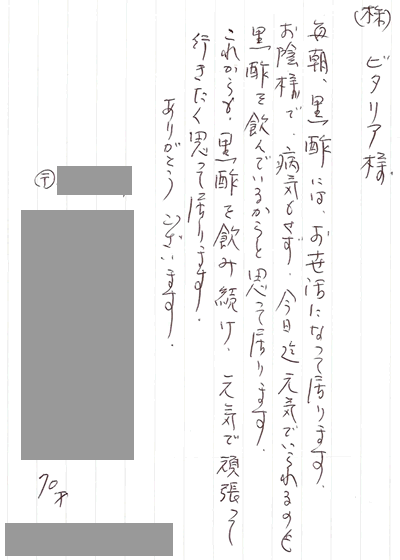 (株)ビタリア様
毎朝、黒酢には、お世話になって居ります。
お陰様で、病気もせず、今日迄元気でいられるのも
黒酢を飲んでいるからと思って居ります。
これからも、黒酢を飲み続け、元気で頑張って
行きたく思って居ります。
ありがとうございます。
〒
70才